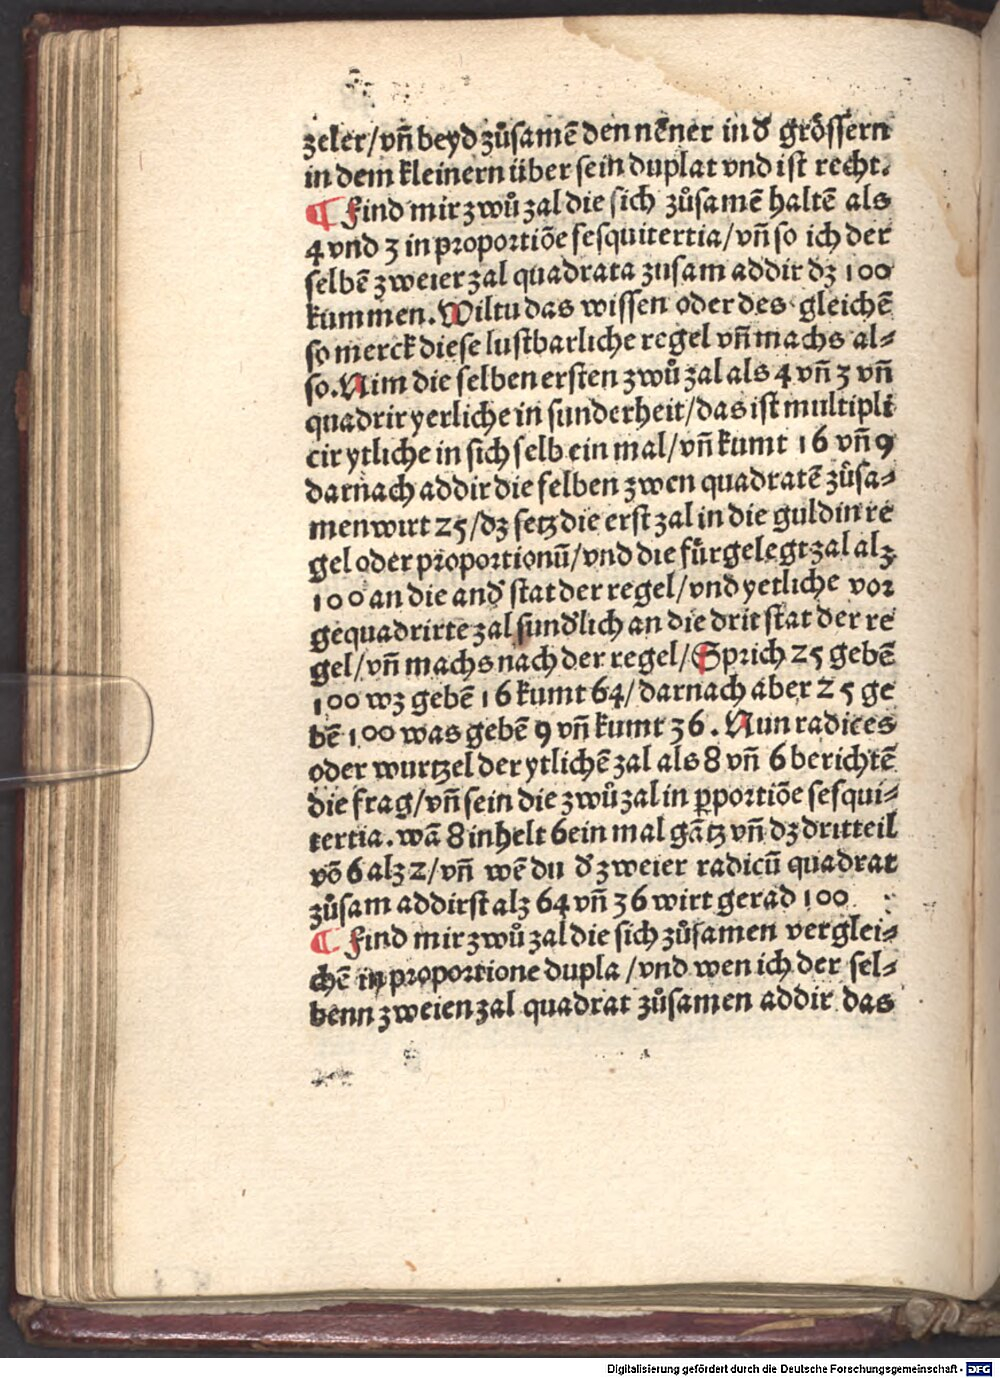 zeler/vñ beyd zůsamē den nēner in dˀ grössern
in dem kleinern über sein duplat vnd ist recht.
¶ Find mir zwů zal die sich zůsamē haltē als
4 vnd 3 in proportiōe sesquitertia/vñ so ich der
selbē zweier zal quadrata zusam addir dz 100
kummen. Wiltu das wissen oder des gleichē
so merck diese lustbarliche regel vñ machs al⸗
so. Nim die selben ersten zwů zal als 4 vñ 3 vñ
quadrir yerliche in sunderheit/das ist multipli
cir ytliche in sich selb ein mal/vñ kumt 16 vñ 9
darnach addir die selben zwen quadratē zůsa⸗
men wirt 25/dz setz die erst zal in die guldin re
gel oder proportionū/vnd die fürgelegt zal alz
100 an die andˀ stat der regel/vnd yetliche vor
gequadrirte zal sundˀlich an die drit stat der re
gel/vñ machs nach der regel/Sprich 25 gebē
100 wz gebē 16 kumt 64/darnach aber 25 ge
bē 100 was gebē 9 vñ kumt 36. Nun radices
oder wurtzel der ytlichē zal als 8 vñ 6 berichtē
die frag/vñ sein die zwů zal in ꝓportiōe sesqui⸗
tertia. wā 8 inhelt 6 ein mal gātz vñ dz dritteil
vō 6 alz 2/vñ wē du dˀ zweier radicū quadrat
zůsam addirst alz 64 vñ 36 wirt gerad 100
¶ Find mir zwů zal die sich zůsamen verglei⸗
chē in proportione dupla/vnd wen ich der sel⸗
benn zweien zal quadrat zůsamen addir das
Digitalisierung gefördert durch die Deutsche Forschungsgemeinschaft - DFG